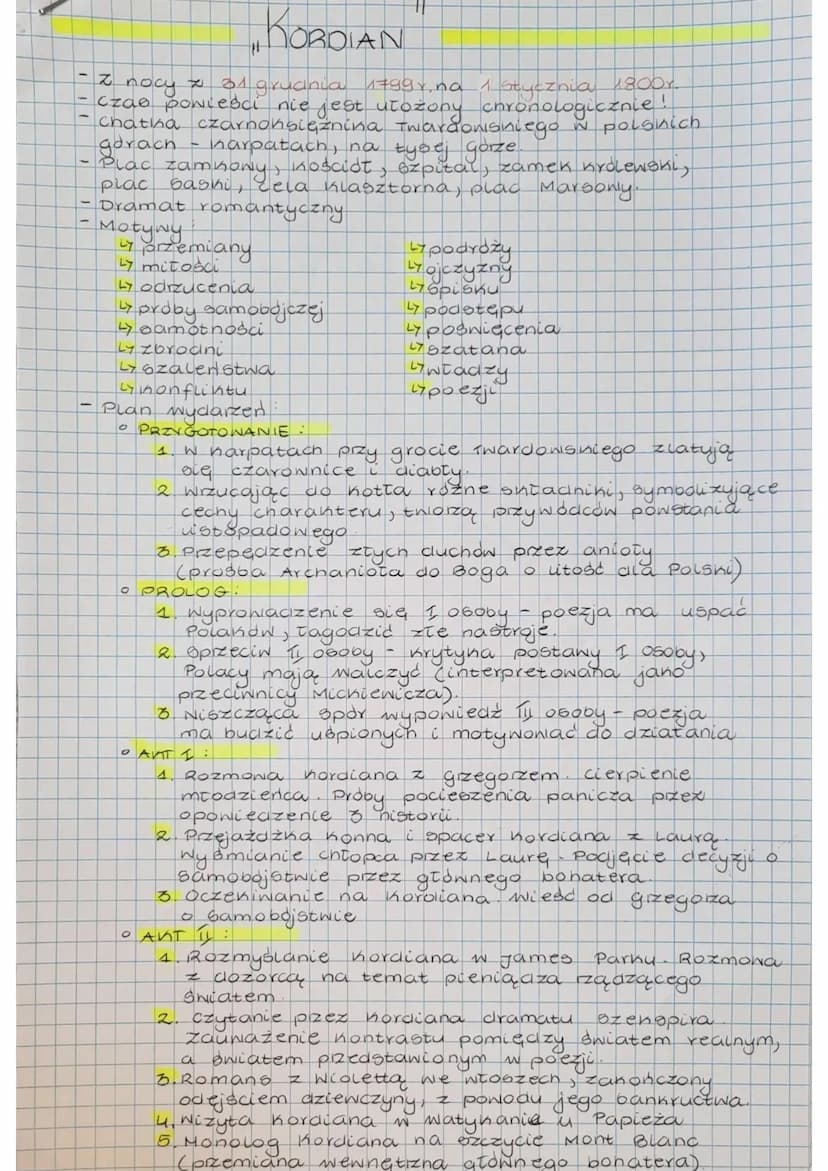 „KORDIAN"
- Z nocy z 31 grudnia 1799r. na 1 stycznia 1800r.
- Czas powieści nie jest ułożony chronologicznie!
- Chatka czarnoksiężnika Twardowskiego w polskich
górach - karpatach, na łysej górze.
- Plac zamkowy, kościół, szpital, zamek królewski,
plac saski, cela klasztorna, plac Marsowy.
- Dramat romantyczny
- Motywy:
↳ przemiany ↳ podróży
↳ miłości ↳ ojczyzny
↳ odrzucenia ↳ spisku
↳ próby samobójczej ↳ podstępu
↳ samotności ↳ poświęcenia
↳ zbrodni ↳ szatana
↳ szaleństwa ↳ władzy
↳ konfliktu ↳ poezji
- Plan wydarzeń:
○ PRZYGOTOWANIE:
1. W karpatach przy grocie Twardowskiego zlatują
się czarownice i diabły.
2. Wrzucając do kotła różne składniki, symbolizujące
cechy charakteru, tworzą przywódców powstania
listopadowego.
3. Przepędzenie złych duchów przez anioły
(prośba Archanioła do Boga o litość dla Polski)
○ PROLOG:
1. Wyprowadzenie się I osoby - poezja ma uspać
Polaków, łagodzić złe nastroje.
2. Sprzeciw II osoby - krytyka postawy I osoby,
Polacy mają walczyć (interpretowana jako
przeciwnicy Mickiewicza).
3. Niszcząca spór wypowiedź III osoby - poezja
ma budzić uśpionych i motywować do działania
○ AKT I:
1. Rozmowa Kordiana z grzegorzem. cierpienie
młodzieńca. Próby pocieszenia panicza przez
opowiedzenie 3 historii.
2. Przejażdżka konna i spacer Kordiana z Laurą.
Wyśmianie chłopca przez Laurę. Podjęcie decyzji o
samobójstwie przez głównego bohatera.
3. Oczekiwanie na Kordiana. Wieść od grzegorza
o samobójstwie
○ AKT II:
1. Rozmyślanie Kordiana w James Parku. Rozmowa
z dozorcą na temat pieniądza rządzącego
światem.
2. Czytanie przez Kordiana dramatu Szekspira.
zauważenie kontrastu pomiędzy światem realnym,
a światem przedstawionym w poezji.
3. Romans z Wiolettą we włoszech, zakończony
odejściem dziewczyny, z powodu jego bankructwa.
4. Wizyta Kordiana w Watykanie u Papieża
5. Monolog Kordiana na szczycie Mont Blanc
(przemiana wewnętrzna głównego bohatera)